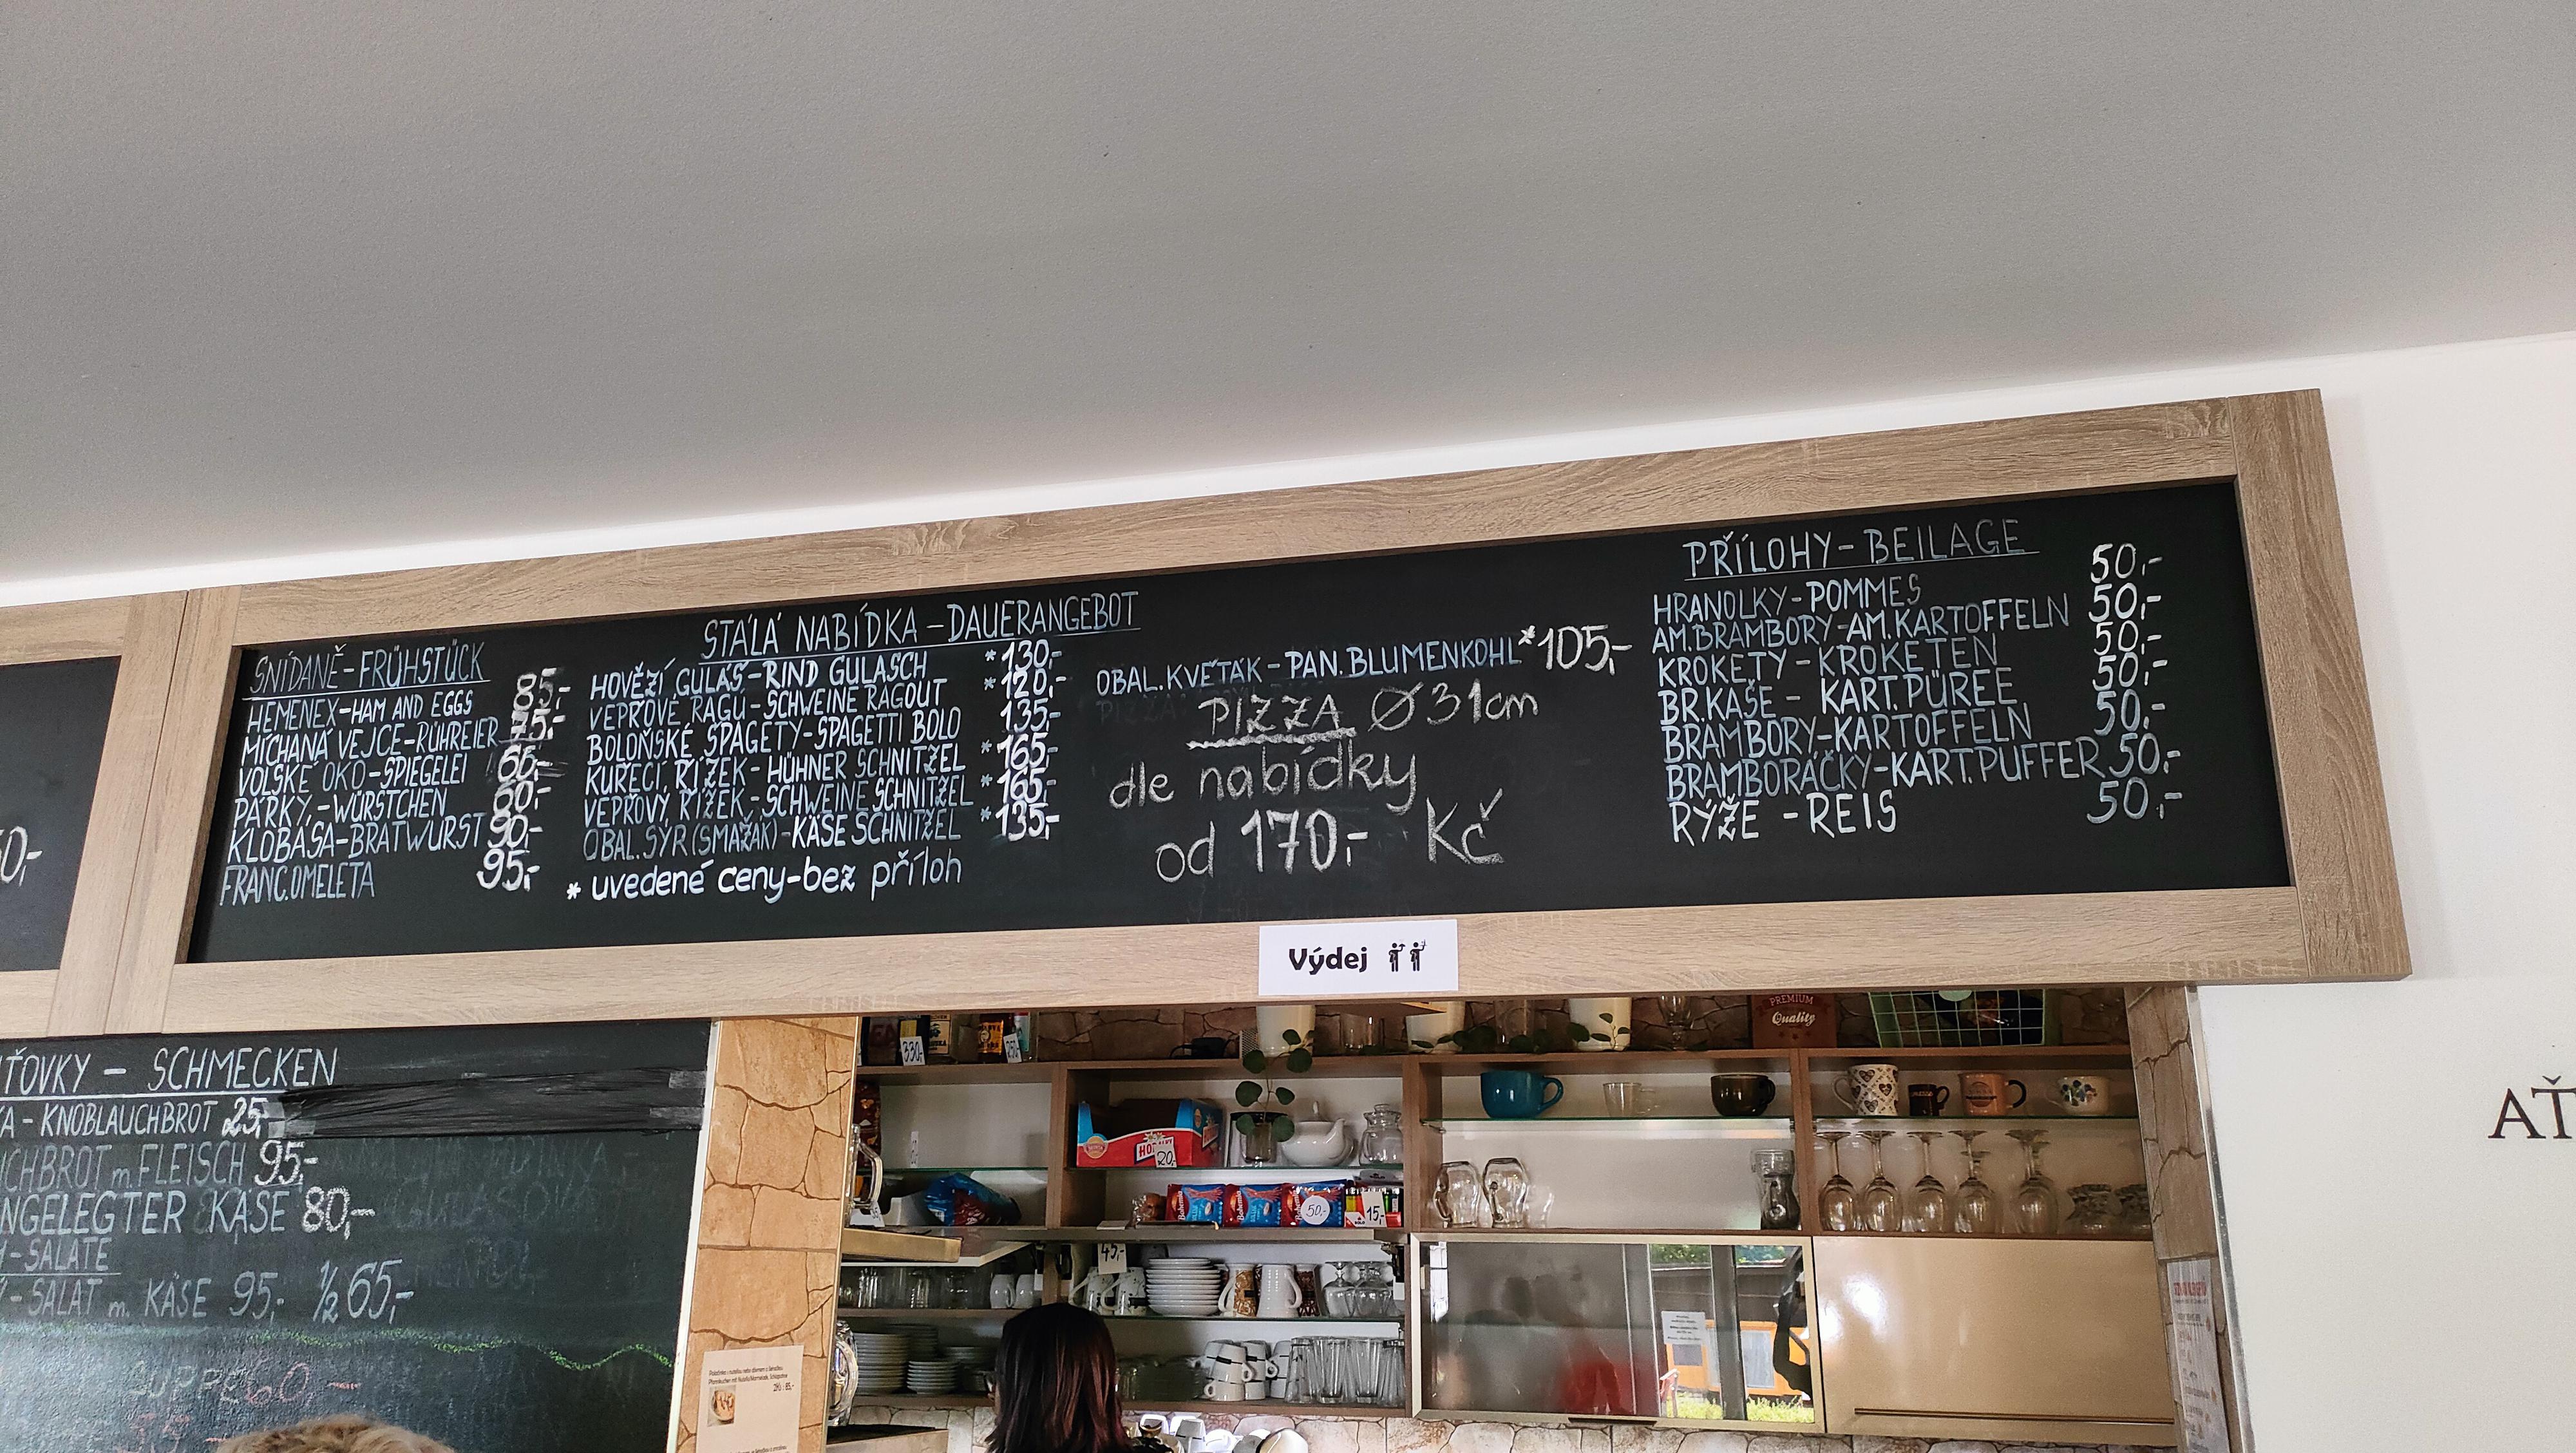 SNÍDANĚ-FRÜHSTÜCK
HEMENEX-HAM AND EGGS 85,-
MÍCHANÁ VEJCE-RÜHREIER 75,-
VOLSKÉ OKO-SPIEGELEI
PÁRKY,-WÜRSTCHEN 80,-
KLOBÁSA-BRATWURST 90,-
FRANC.OMELETA 95,-
STÁLÁ NABÍDKA-DAUERANGEBOT
HOVĚZÍ GULÁŠ-RIND GULASCH *130,-
VEPŘOVÉ RAGÚ-SCHWEINE RAGOUT *120,-
BOLOŇSKÉ ŠPAGETY-SPAGETTI BOLO 135,-
KUŘECÍ ŘÍZEK-HÜHNER SCHNITZEL *165,-
VEPŘOVÝ ŘÍZEK-SCHWEINE SCHNITZEL *165,-
OBAL.SÝR(SMAŽÁK)-KÄSE SCHNITZEL *135,-
* uvedené ceny-bez příloh
OBAL.KVĚTÁK-PAN.BLUMENKOHL *105,-
PIZZA Ø 31cm
dle nabídky
od 170,- Kč
PŘÍLOHY-BEILAGE
HRANOLKY-POMMES 50,-
AM.BRAMBORY-AM.KARTOFFELN 50,-
KROKETY-KROKETEN 50,-
BR.KAŠE-KART.PÜREE 50,-
BRAMBORY-KARTOFFELN 50,-
BRAMBORÁČKY-KART.PUFFER 50,-
RÝŽE-REIS 50,-
0,-
Výdej
ŤOVKY - SCHMECKEN
A-KNOBLAUCHBROT 25,-
CHBROT m.FLEISCH 95,-
NGELEGTER KÄSE 80,-
-SALATE
-SALAT m. KÄSE 95,- ½ 65,-
SUPPE 60,-
PREMIUM
Quality
330,-
250,-
HORALKY
20,-
Bohemia
50,-
15,-
45,-
AŤ